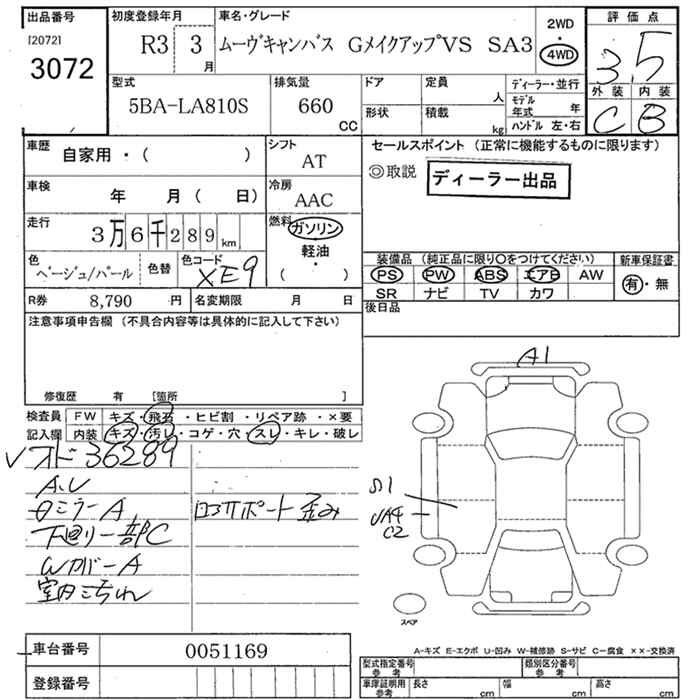 出品番号
[2072]
3072
初度登録年月
R3 3 月
車名・グレード
ムーヴキャンバス GメイクアップVS SA3
2WD
・
4WD
評価点
3.5
外装 内装
C B
型式
5BA-LA810S
排気量
660 CC
ドア
形状
定員 人
積載 kg
ディーラー・並行
モデル年式 年
ハンドル 左・右
車歴 自家用・( )
車検 年 月( 日)
走行 3万6千289km
色 ベージュ/パール
色替
色コード XE9
シフト
AT
冷房
AAC
燃料
ガソリン
・
軽油
・
( )
R券 8,790 円
名変期限 月 日
セールスポイント (正常に機能するものに限ります)
◎取説 ディーラー出品
装備品 (純正品に限り〇をつけてください)
PS PW ABS エアB AW
SR ナビ TV カワ
新車保証書
有・無
後日品
注意事項申告欄 (不具合内容等は具体的に記入して下さい)
修復歴 有 [箇所 ]
検査員 FW キズ・飛石・ヒビ割・リペア跡・×要
記入欄 内装 キズ・汚レ・コゲ・穴・スレ・キレ・破レ
オド 36289
A.U
ミラーA
下廻り一部C
WカバーA
室内こちれ
ロアサポート歪み
A1
A4
C2
スペア
A-キズ E-エクボ U-凹み W-補修跡 S-サビ C-腐食 ××-交換済
車台番号 0051169
登録番号
型式指定番号 参考
類別区分番号 参考
車庫証明用 参考
長さ cm
幅 cm
高さ cm